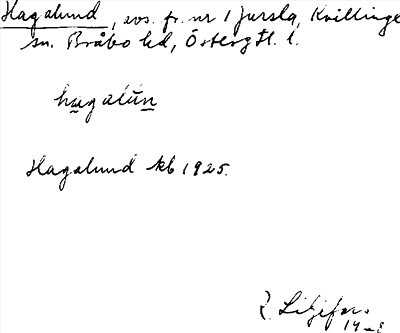 Hagalund, avs. fr. nr 1 Jursla, Kvillinge
sn. Bråbo hd, Östergtl. l.
hagalún
Hagalund kb 1925.
Liljefors